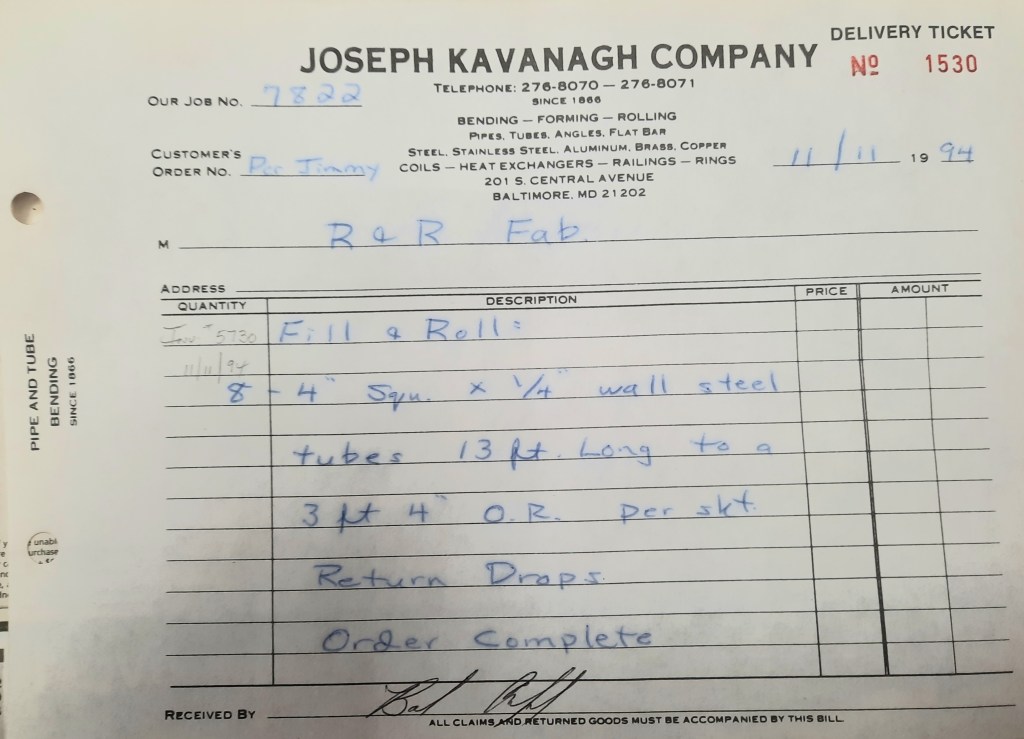 DELIVERY TICKET
JOSEPH KAVANAGH COMPANY
Nº 1530
TELEPHONE: 276-8070 — 276-8071
SINCE 1866
OUR JOB NO. 7822
BENDING — FORMING — ROLLING
PIPES, TUBES, ANGLES, FLAT BAR
STEEL, STAINLESS STEEL, ALUMINUM, BRASS, COPPER
CUSTOMER'S
ORDER NO. Per Jimmy
COILS — HEAT EXCHANGERS — RAILINGS — RINGS
11/11 19 94
201 S. CENTRAL AVENUE
BALTIMORE, MD 21202
M R & R Fab.
ADDRESS
QUANTITY DESCRIPTION PRICE AMOUNT
Inv. # 5730 Fill & Roll:
11/11/94
8 - 4" Squ. x 1/4" wall steel
tubes 13 ft. Long to a
3 ft 4" O.R. per skt.
Return Drops.
Order Complete
RECEIVED BY
ALL CLAIMS AND RETURNED GOODS MUST BE ACCOMPANIED BY THIS BILL
PIPE AND TUBE
BENDING
SINCE 1866
unabl
urchase